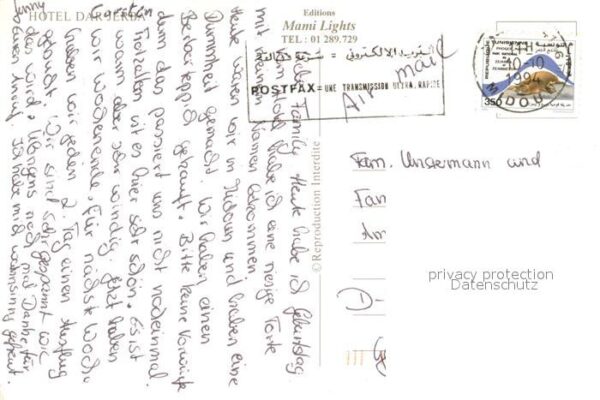 HOTEL DAR JERBA
Editions
Mami Lights
TEL : 01 289.729
Liebe Family Heute habe ich Geburtstag.
Vom Hotel habe ich eine riesige Torte
mit meinem Namen bekommen.
Heute waren wir in Midoun und haben eine
Dummheit gemacht. Wir haben einen
Teppich gekauft. Bitte keine Vorwürfe
denn das passiert uns nicht nocheinmal
Trotzallem ist es hier sehr schön. Es ist
warm aber sehr windig. Jetzt haben
wir Wochenende. Für nächste Woche
haben wir jeden 2. Tag einen Ausflug
gebucht. Wir sind sehr gespannt wie
das wird. Übrigens noch viel Danke für
Euren Anruf. Ich habe mich wahnsinnig gefreut.
Jenny
© Reproduction Interdite
البريد الإلكتروني
POSTFAX = UNE TRANSMISSION ULTRA RAPIDE
Air mail
10-10
1994
MIDOUN
350
Fam. Unstermann und
Fam
D-
privacy protection
Datenschutz